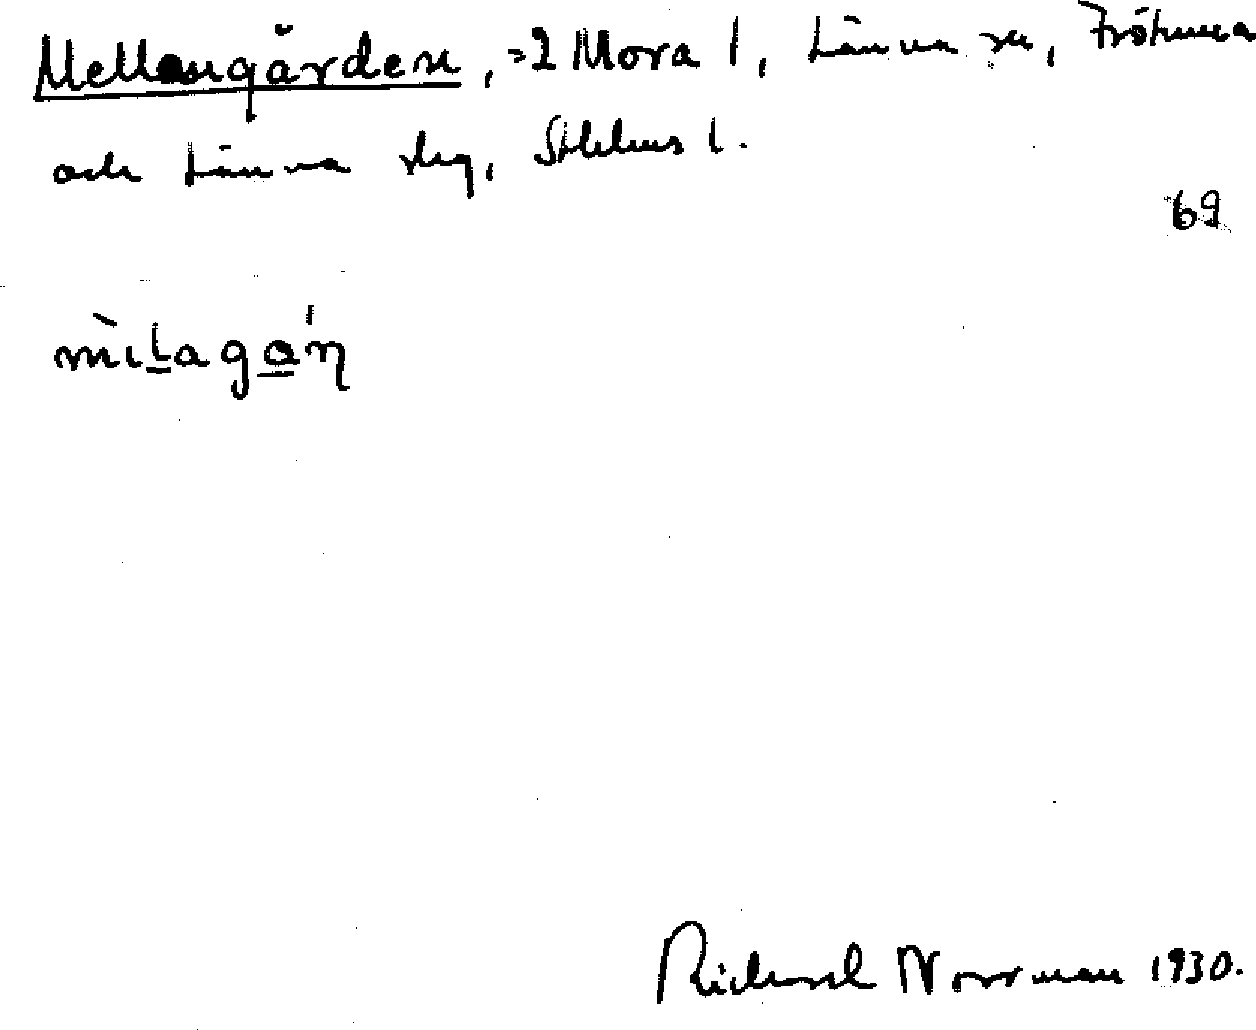 Mellangården, =2 Mora 1, Länna sn, Frötuna
och Länna slg, Sthlms l.
69
mìlagán
Richard Norrman 1930.